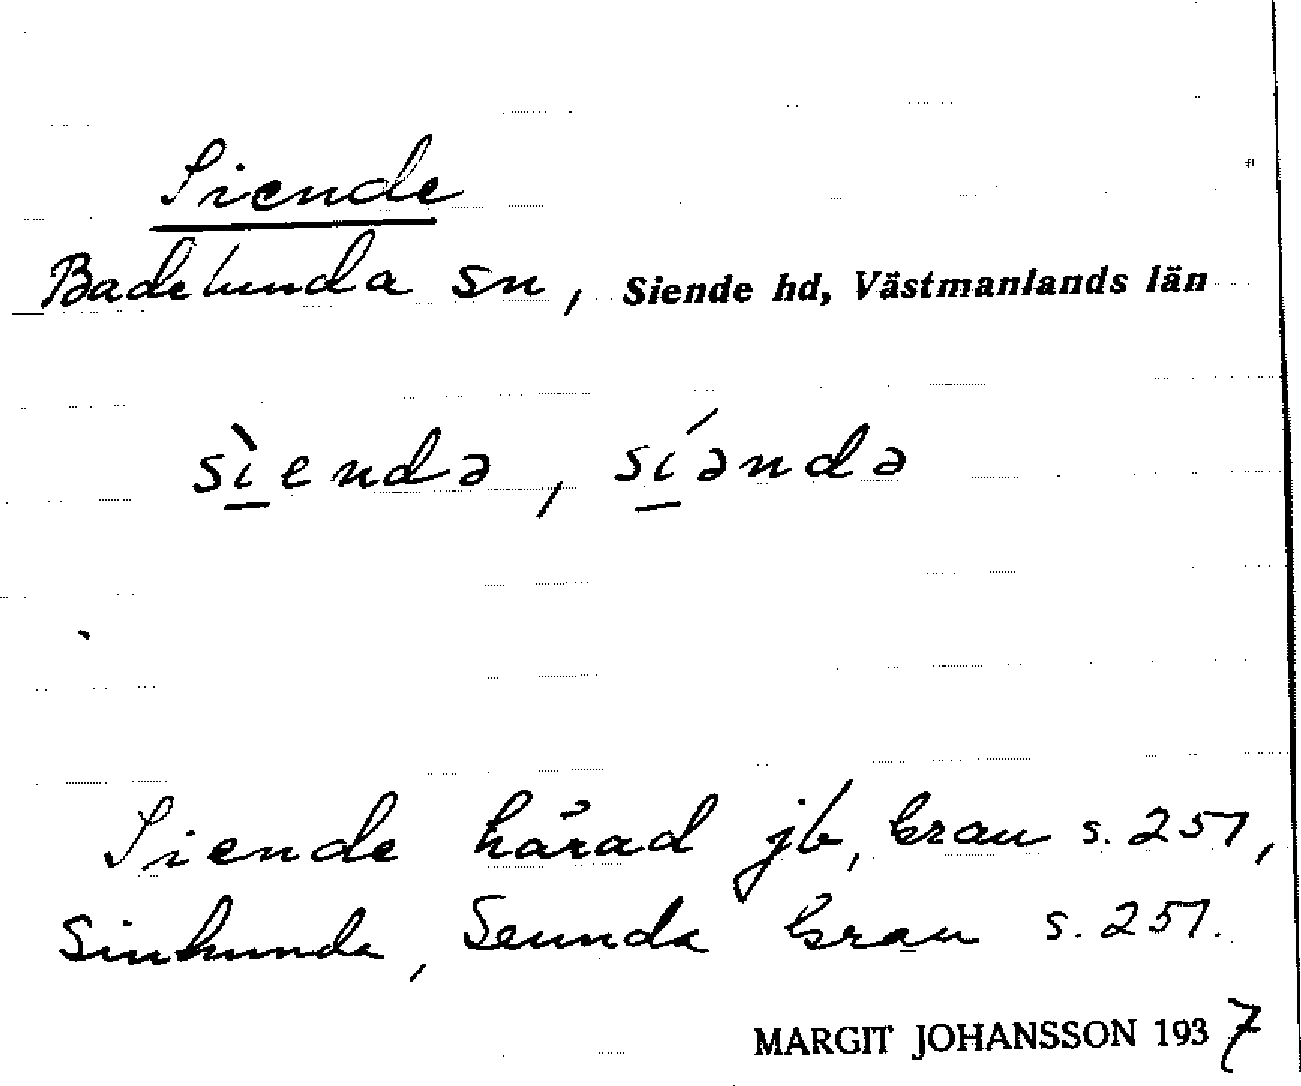 Siende
Badelunda sn, Siende hd, Västmanlands län
sìendə, síəndə
Siende härad jb, Grau s. 257,
Sinhunda, Seunda Grau s. 257.
MARGIT JOHANSSON 1937